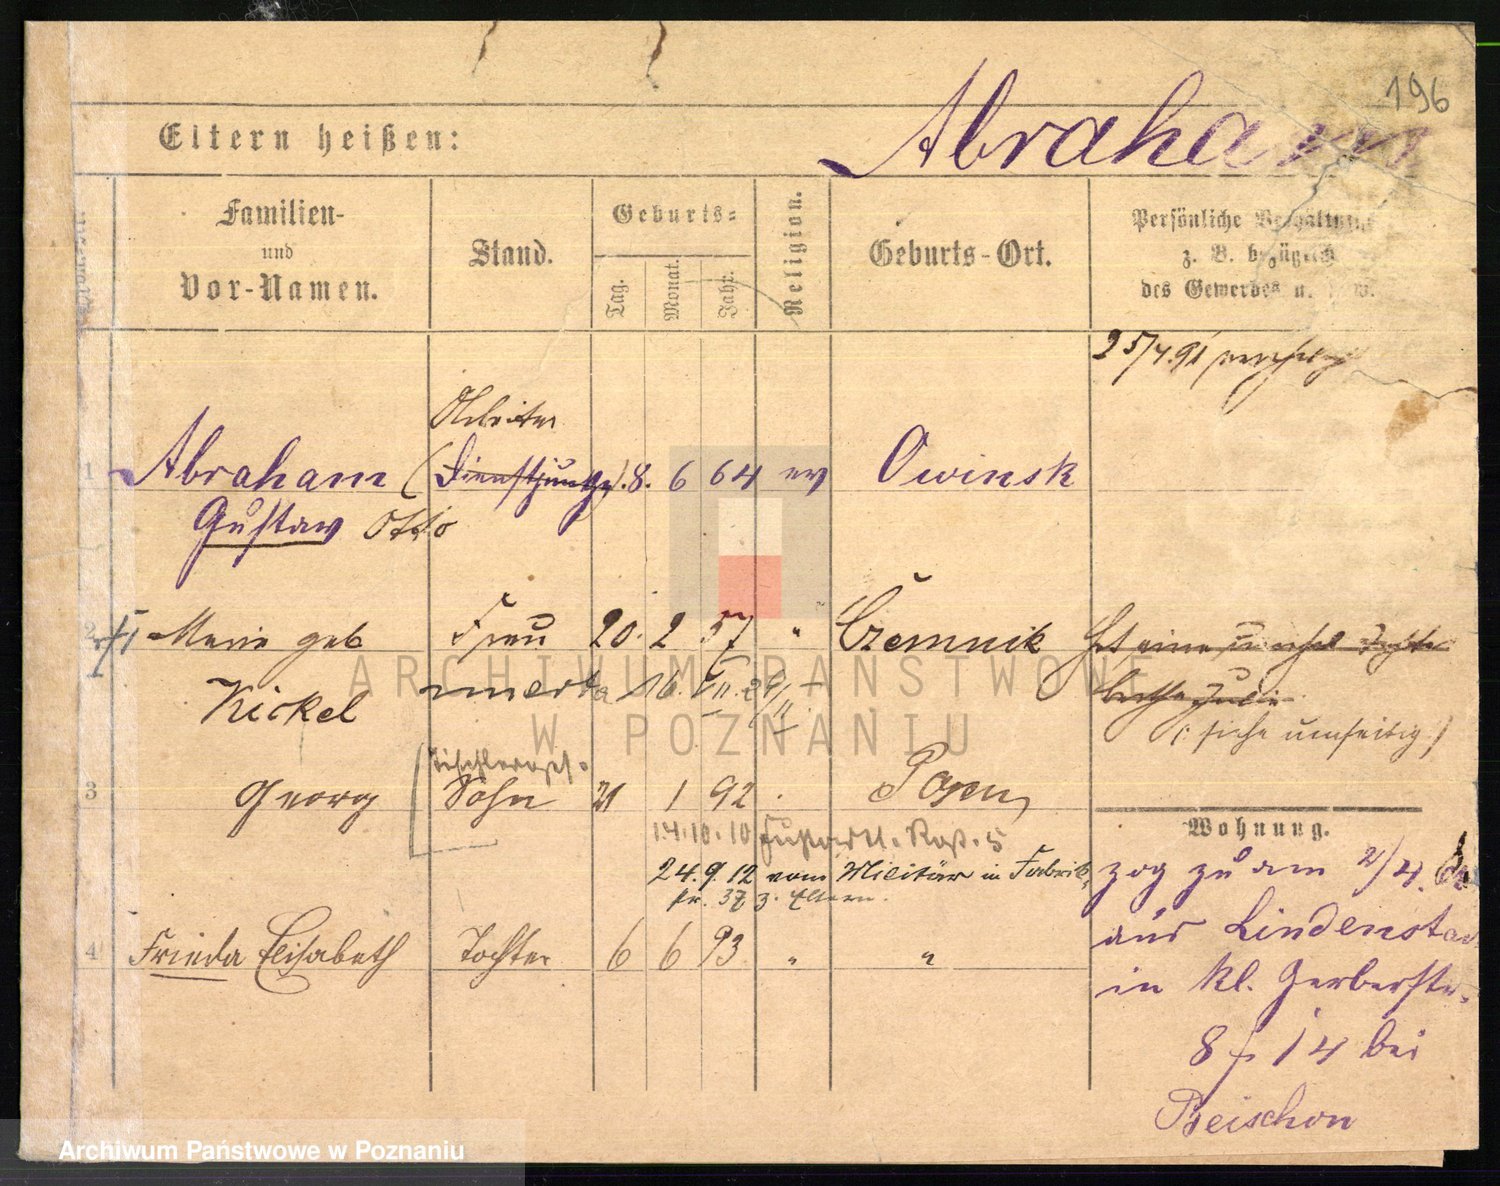 196
Eltern heißen:
Abraham
Familien-
und
Vor-Namen.
Stand.
Geburts-
Tag.
Monat.
Jahr.
Religion.
Geburts-Ort.
Persönliche Verhältnisse
z. B. bezüglich
des Gewerbes u. s. w.
25/4 91
Arbeiter
1 Abraham (Dienstjunge) 8. 6 64 ev Owinsk
Gustav Otto
2 Marie geb Frau 20. 2 57 " Czemnik
Kickel
(: siehe umseitig :)
Tischlerges.
3 Georg Sohn 21 1 92 Posen
14.10.10 Fußartl. Rgt. 5
24.9.12 vom Militär in Fabrik
str. 37 z. Eltern.
4 Frieda Elisabeth Tochter 6 6 93 " "
Wohnung.
zog zu am 2/4.
aus Lindenstr
in kl. Gerberstr.
8 14 bei
Beischon
ARCHIWUM PAŃSTWOWE
W POZNANIU
Archiwum Państwowe w Poznaniu